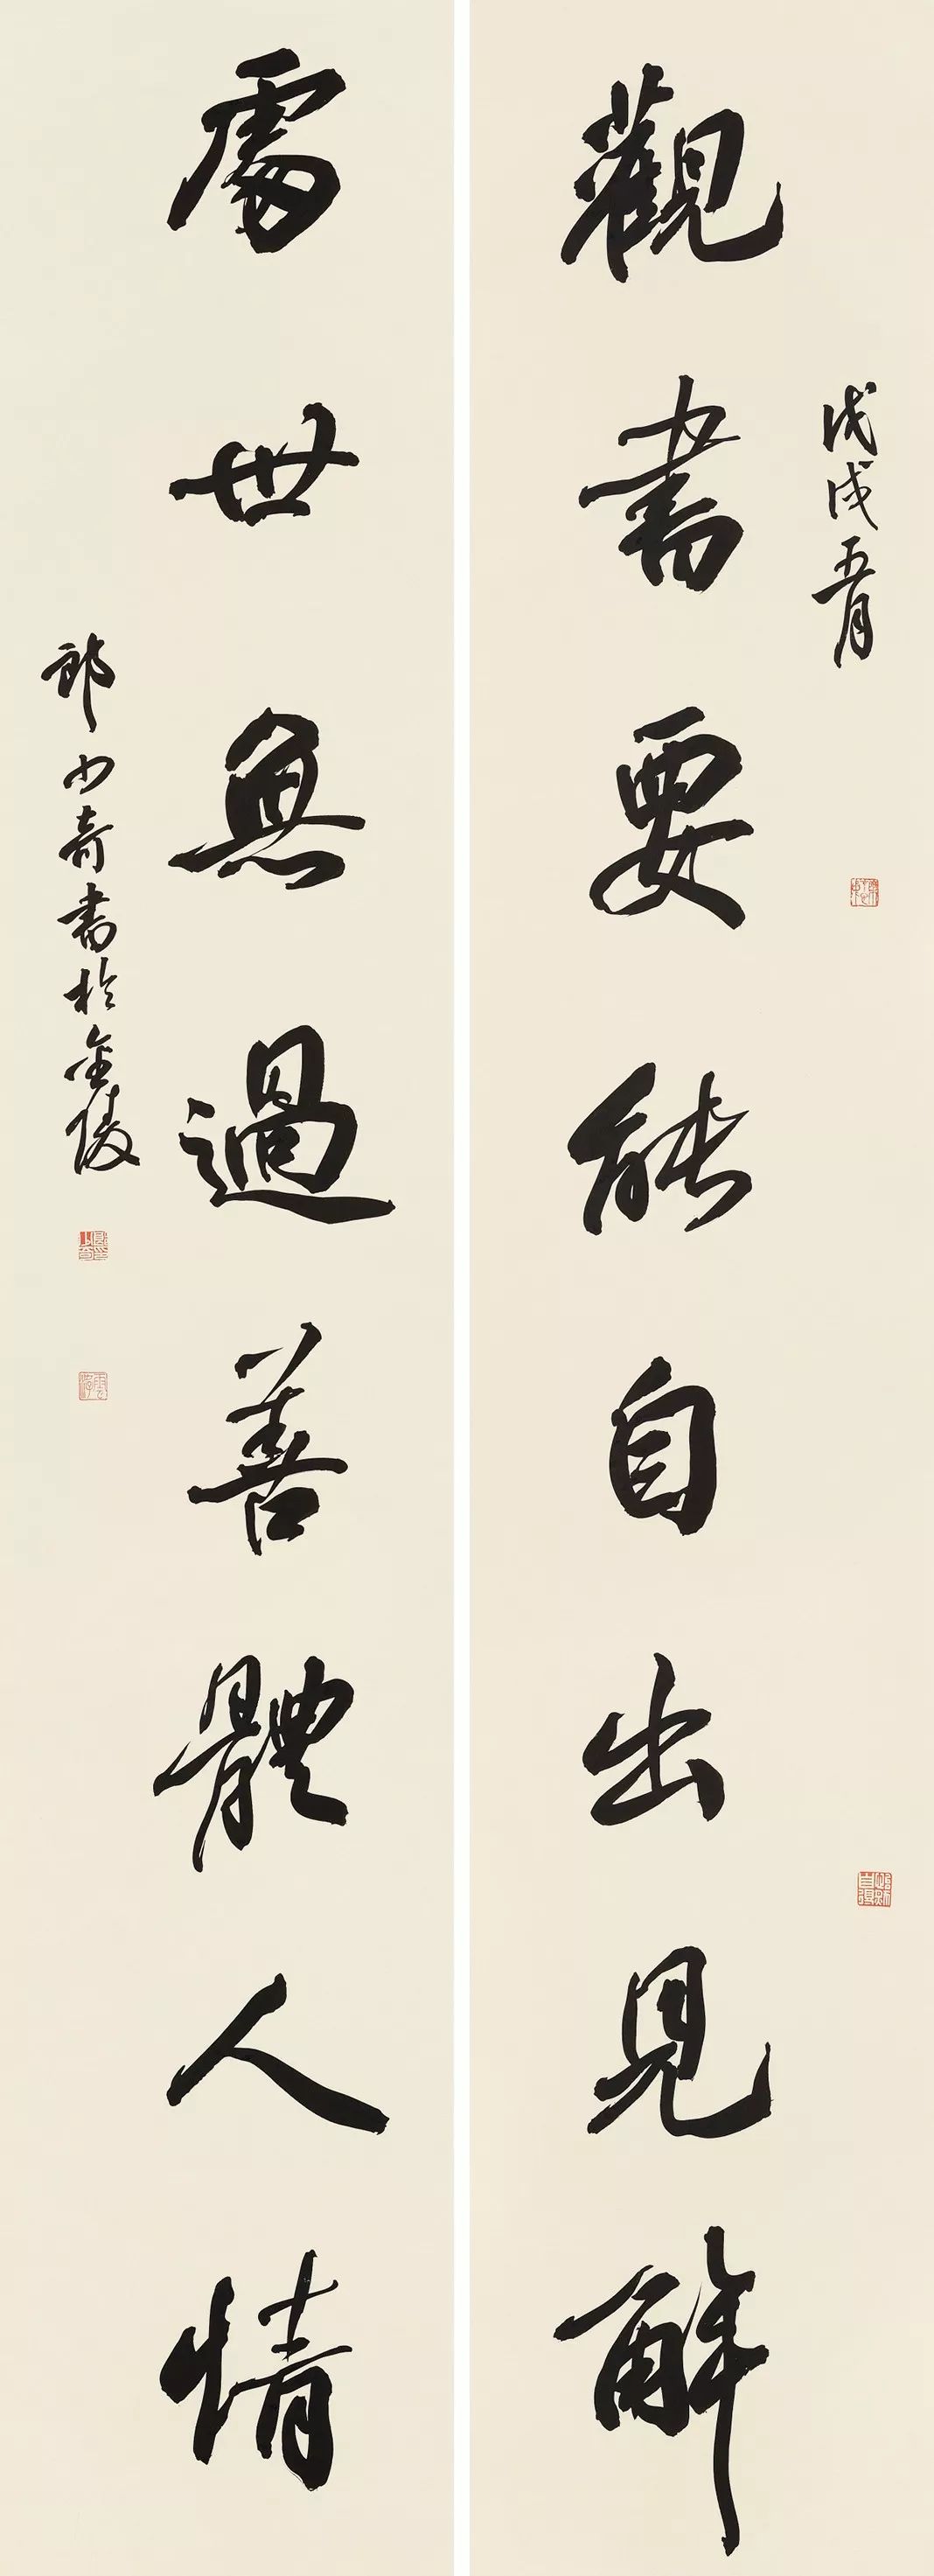 戊戌五月
觀書要能自出見解
處世無過善體人情
郎少奇書於金陵